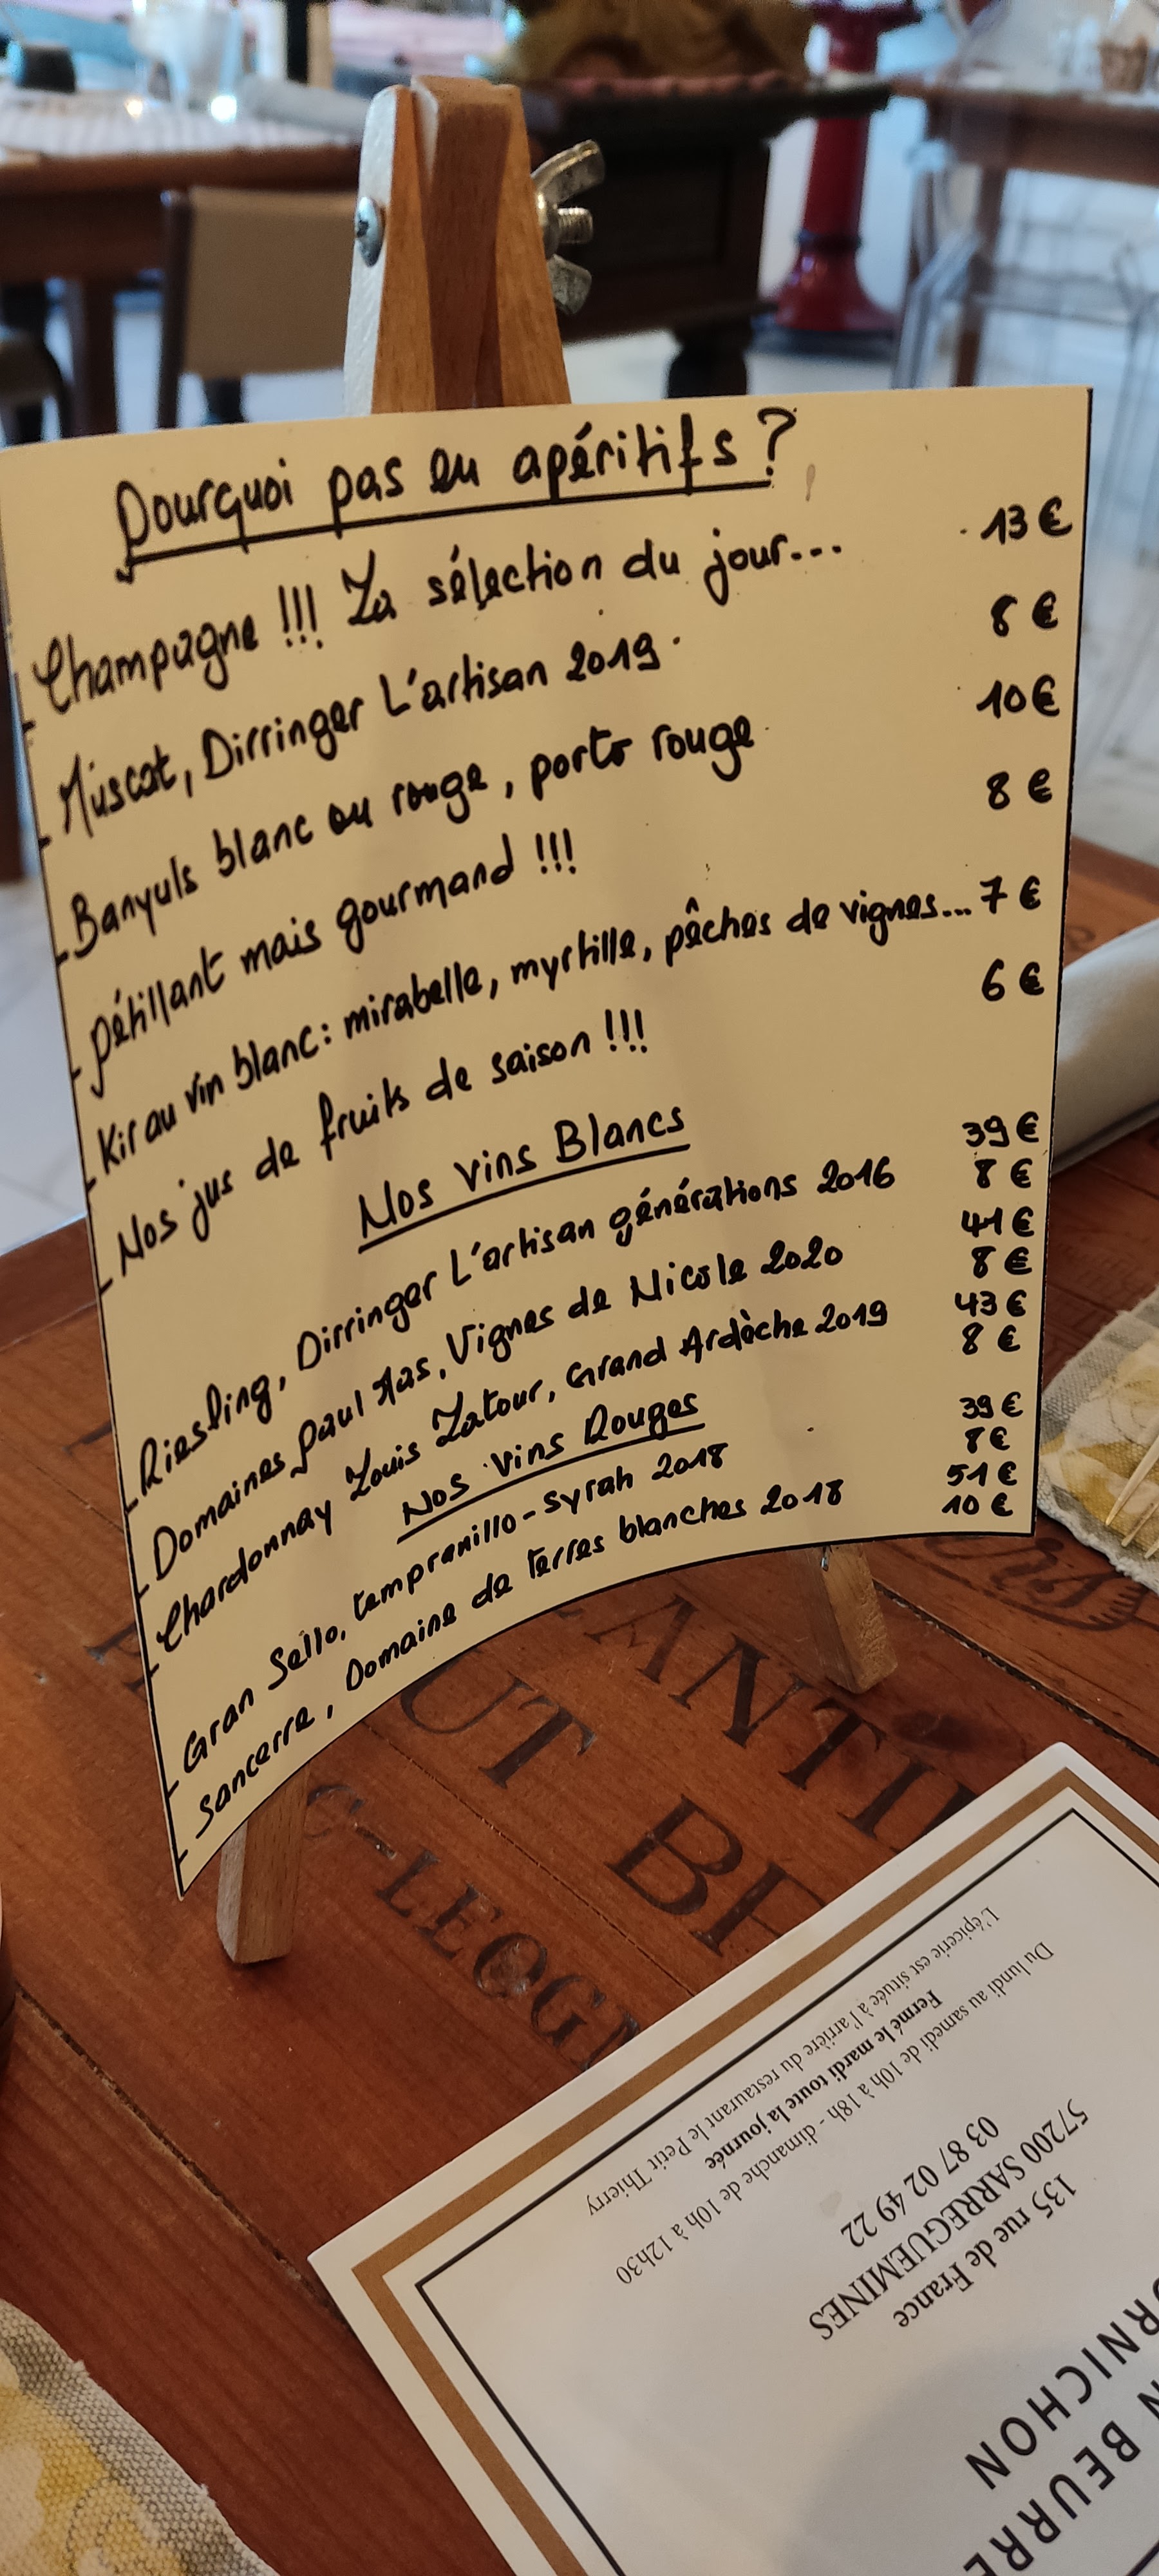 Pourquoi pas en apéritifs ?
- Champagne !!! La sélection du jour... 13 €
- Muscat, Dirringer L'artisan 2019 8 €
- Banyuls blanc ou rouge, porto rouge 10 €
- pétillant mais gourmand !!! 8 €
- Kir au vin blanc : mirabelle, myrtille, pêches de vignes... 7 €
- Nos jus de fruits de saison !!! 6 €
Nos vins Blancs
- Riesling, Dirringer L'artisan générations 2016 39 €
8 €
- Domaines Paul Mas, Vignes de Nicole 2020 41 €
8 €
- Chardonnay Louis Latour, Grand Ardèche 2019 43 €
8 €
Nos Vins Rouges
- Gran Sello, tempranillo-syrah 2018 39 €
8 €
- Sancerre, Domaine de terres blanches 2018 51 €
10 €
ANTI
UT BE
C-LEOGN
BEURRE
RNICHON
135 rue de France
57200 SARREGUEMINES
03 87 02 49 22
Du lundi au samedi de 10h à 18h - dimanche de 10h à 12h30
Fermé le mardi toute la journée
L'épicerie est située à l'arrière du restaurant le Petit Thierry